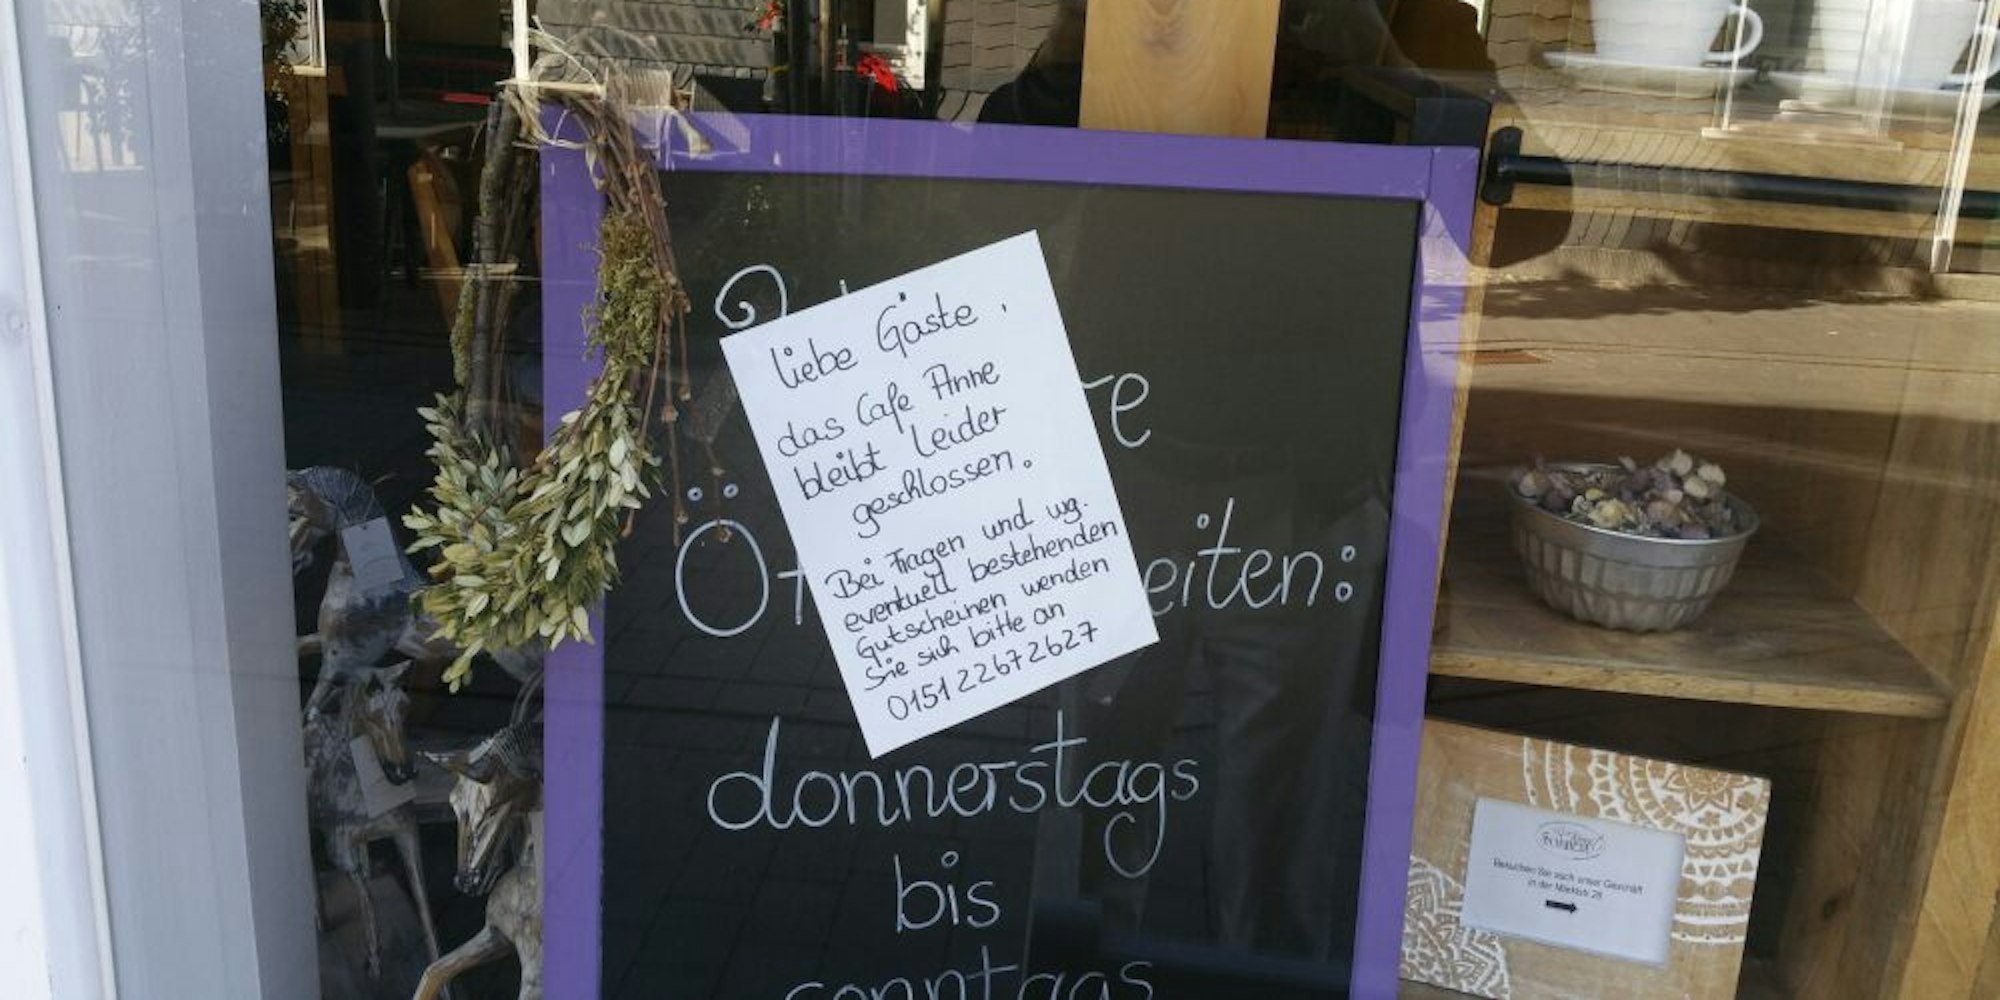 liebe Gäste,
das Cafe Anne
bleibt leider
geschlossen.
Bei Fragen und wg.
eventuell bestehenden
Gutscheinen wenden
Sie sich bitte an
0151 22672627
re
Öf eiten:
donnerstags
bis
sonntags
Besuchen Sie auch unser Geschäft
in der Marktstr. 28